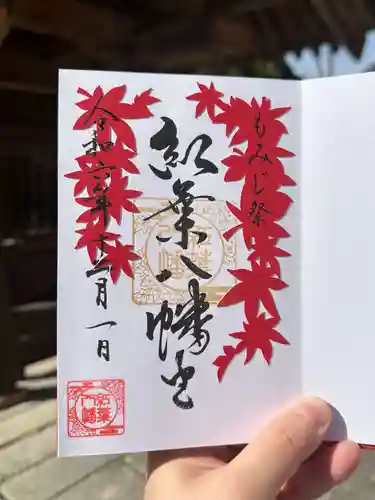 もみじ祭
紅葉八幡宮
令和六年十二月一日